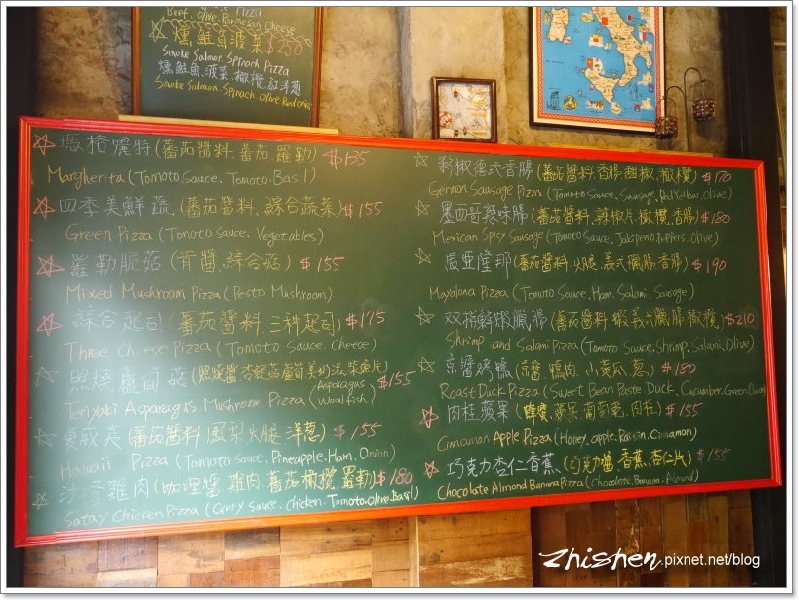 Pizza
Beef, Olive, Parmesan Cheese
燻鮭菠菜 $250
Smoke Salmon Spinach Pizza
燻鮭魚.菠菜.橄欖.紅洋蔥
Smoke Salmon, Spinach, Olive Red Onion
瑪格麗特(蕃茄醬料.蕃茄.羅勒) $135
Margherita (Tomato Sauce, Tomato, Basil)
四季美鮮蔬 (蕃茄醬料.綜合蔬菜) $155
Green Pizza (Tomato Sauce, Vegetables)
羅勒脆菇 (青醬.綜合菇) $155
Mixed Mushroom Pizza (Pesto Mushroom)
綜合起司 (蕃茄醬料.三種起司) $175
Three Cheese Pizza (Tomato Sauce, Cheese)
照燒蘆筍菇 (照燒醬.杏鮑菇.蘆筍.美奶滋.柴魚片) $155
Teriyaki Asparagus Mushroom Pizza (Asparagus Woolfish)
夏威夷 (蕃茄醬料.鳳梨.火腿.洋蔥) $155
Hawaii Pizza (Tomato Sauce, Pineapple, Ham, Onion)
沙嗲雞肉 (咖哩醬.雞肉.蕃茄.橄欖.羅勒) $180
Satay Chicken Pizza (Curry Sauce, Chicken, Tomato, Olive, Basil)
彩椒德式香腸 (蕃茄醬料.香腸.甜椒.橄欖) $170
German Sausage Pizza (Tomato Sauce, Sausage, Red Yellow, Olive)
墨西哥辣味腸 (蕃茄醬料.辣椒片.橄欖.香腸) $180
Mexican Spicy Sausage (Tomato Sauce, Jalapeno Peppers, Olive)
瑪亞隆那 (蕃茄醬料.火腿.義式臘腸.香腸) $190
Mayolona Pizza (Tomato Sauce, Ham, Salami, Sausage)
双拼鮮蝦臘腸 (蕃茄醬料.蝦.義式臘腸.橄欖) $210
Shrimp and Salami Pizza (Tomato Sauce, Shrimp, Salami, Olive)
京醬烤鴨 (京醬.鴨肉.小黃瓜.蔥) $180
Roast Duck Pizza (Sweet Bean Paste Duck, Cucumber, Green Onion)
肉桂蘋果 (蜂蜜.蘋果.葡萄乾.肉桂) $155
Cinnamon Apple Pizza (Honey, apple, Raisin, Cinnamon)
巧克力杏仁香蕉 (巧克力醬.香蕉.杏仁片) $155
Chocolate Almond Banana Pizza (Chocolate, Banana, Almond)
zhishen.pixnet.net/blog